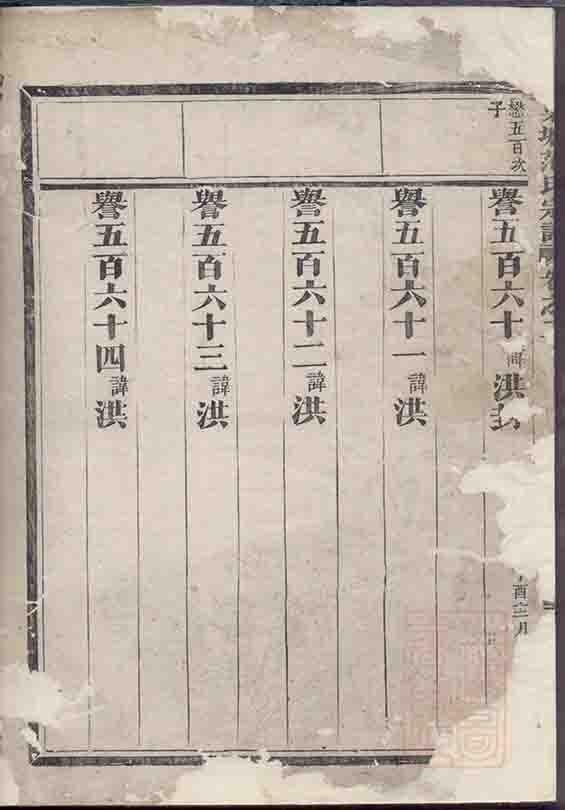 氏宗譜
懋五百次
子
譽五百六十諱洪
譽五百六十一諱洪
譽五百六十二諱洪
譽五百六十三諱洪
譽五百六十四諱洪
酉二月